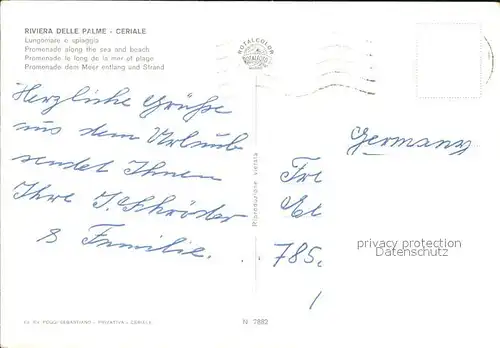 RIVIERA DELLE PALME - CERIALE
Lungomare e spiaggia
Promenade along the sea and beach
Promenade le long de la mer et plage
Promenade dem Meer entlang und Strand
ROTALCOLOR
Herzliche Grüße
aus dem Urlaub
sendet Ihnen
Ihre J. Schröder
& Familie.
Riproduzione vietata
Germany
785
privacy protection
Datenschutz
POGGI SEBASTIANO - PRIVATIVA - CERIALE
N 7882